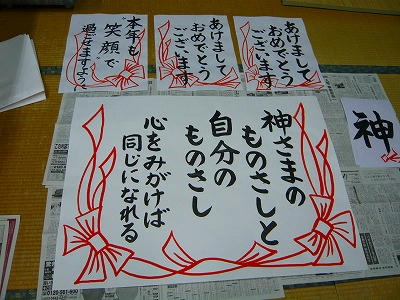 本年も
"笑顔"で
過ごせますように
あけまして
おめでとう
ございます
あけまして
おめでとう
ございます
神さまの
ものさしと
自分の
ものさし
心をみがけば
同じになれる
神